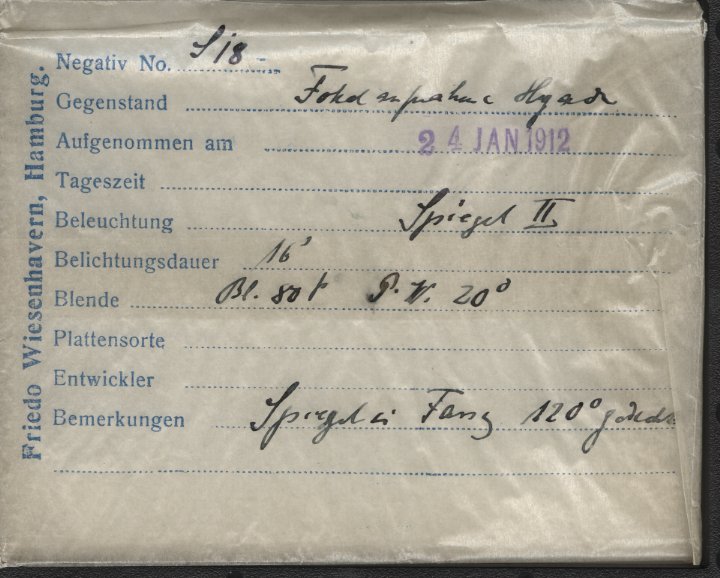 Friedo Wiesenhavern, Hamburg.
Negativ No. S 18
Gegenstand Fokalaufnahme Hyad
Aufgenommen am 24 JAN 1912
Tageszeit
Beleuchtung Spiegel II
Belichtungsdauer 16'
Blende Bl. 80 P.W. 20°
Plattensorte
Entwickler
Bemerkungen Spiegel in 120°